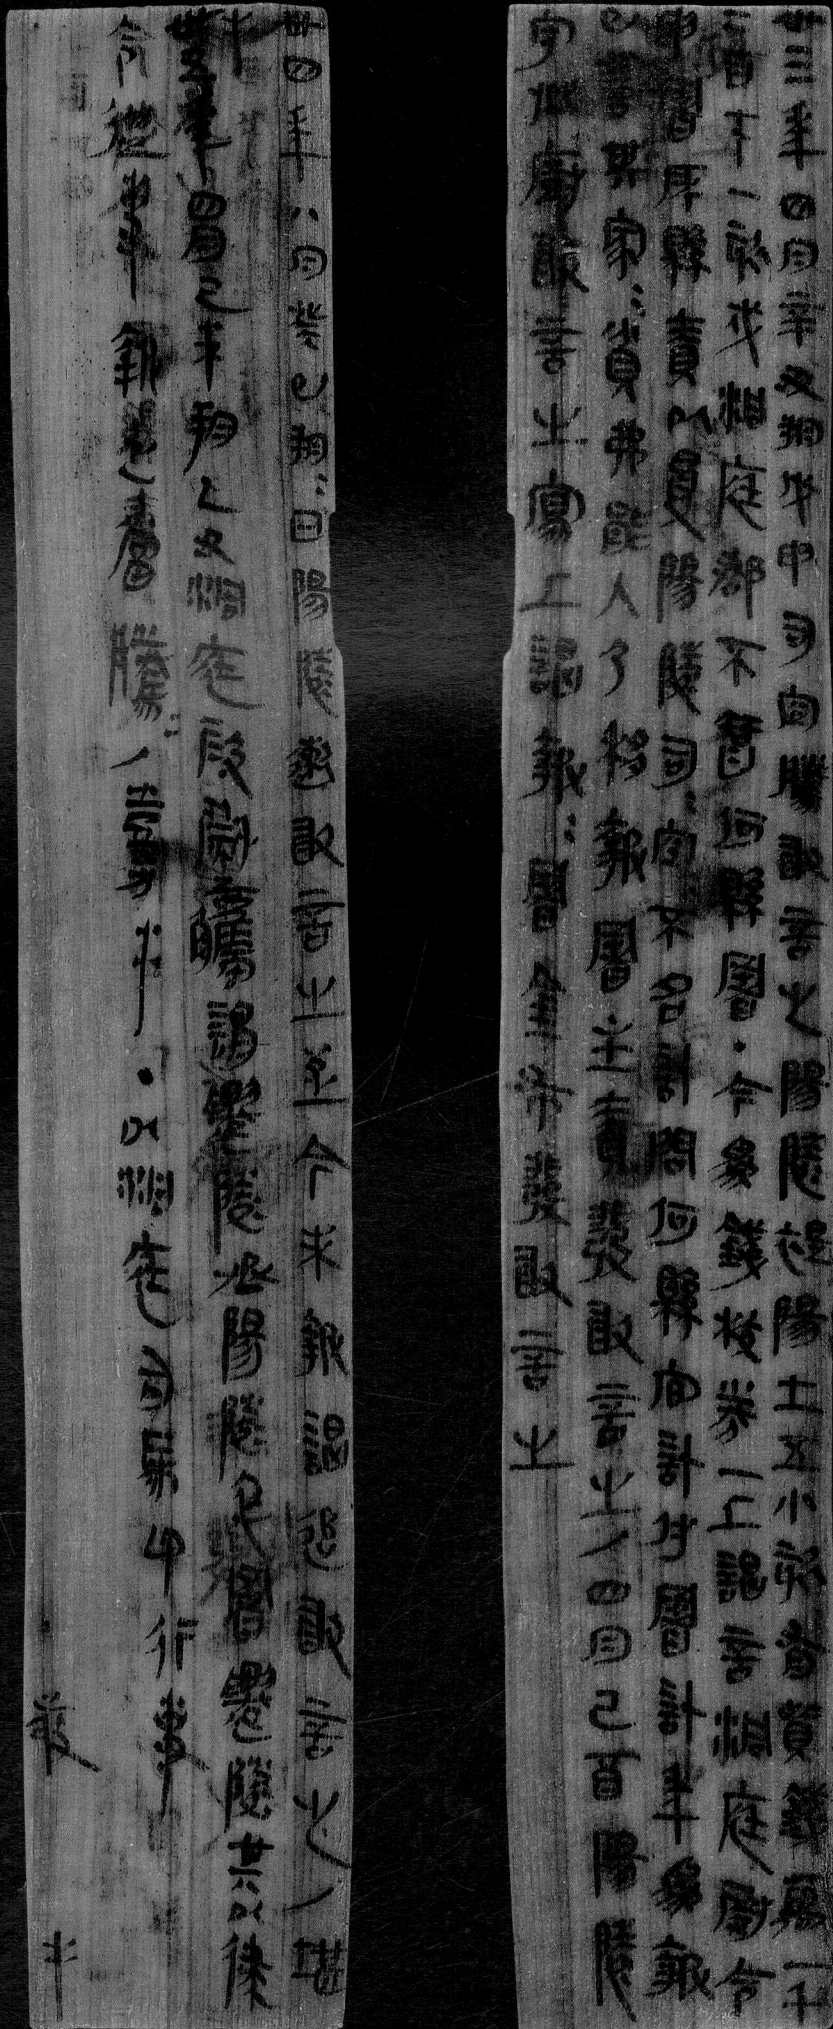 卅三年四月辛丑朔戊申司空騰敢言之陽陵褆陽士五小欬有貲錢萬一千
二百七十一欬戍洞庭郡不智何縣署·今為錢校券一上謁言洞庭尉令
申署所縣責以受陽陵司=空=不名計問何縣官計付署計年為報
已訾其家=貧弗能入乃移報署主責發敢言之/四月己酉陽陵
守丞廚敢言之寫上謁報=署金布發敢言之
卅四年八月癸巳朔=日陽陵遬敢言之至今未報謁追敢言之/堪
手
卅五年四月己未朔乙丑洞庭叚尉觿謂遷陵丞陽陵卒署遷陵其以律
令從事報之當騰=/嘉手·以洞庭司馬印行事
敬手